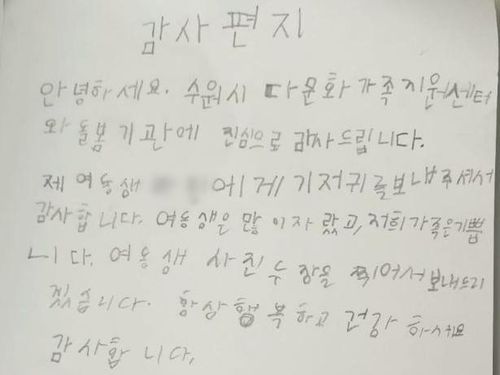 감사편지
안녕하세요. 수원시 다문화가족지원센터
와 돌봄기관에 진심으로 감사드립니다.
제 여동생 에게 기저귀를 보내주셔서
감사합니다. 여동생은 많이 자랐고, 저희 가족은 기쁩
니다. 여동생 사진 두 장을 찍어서 보내드리
겠습니다. 항상 행복하고 건강 하세요
감사합니다.